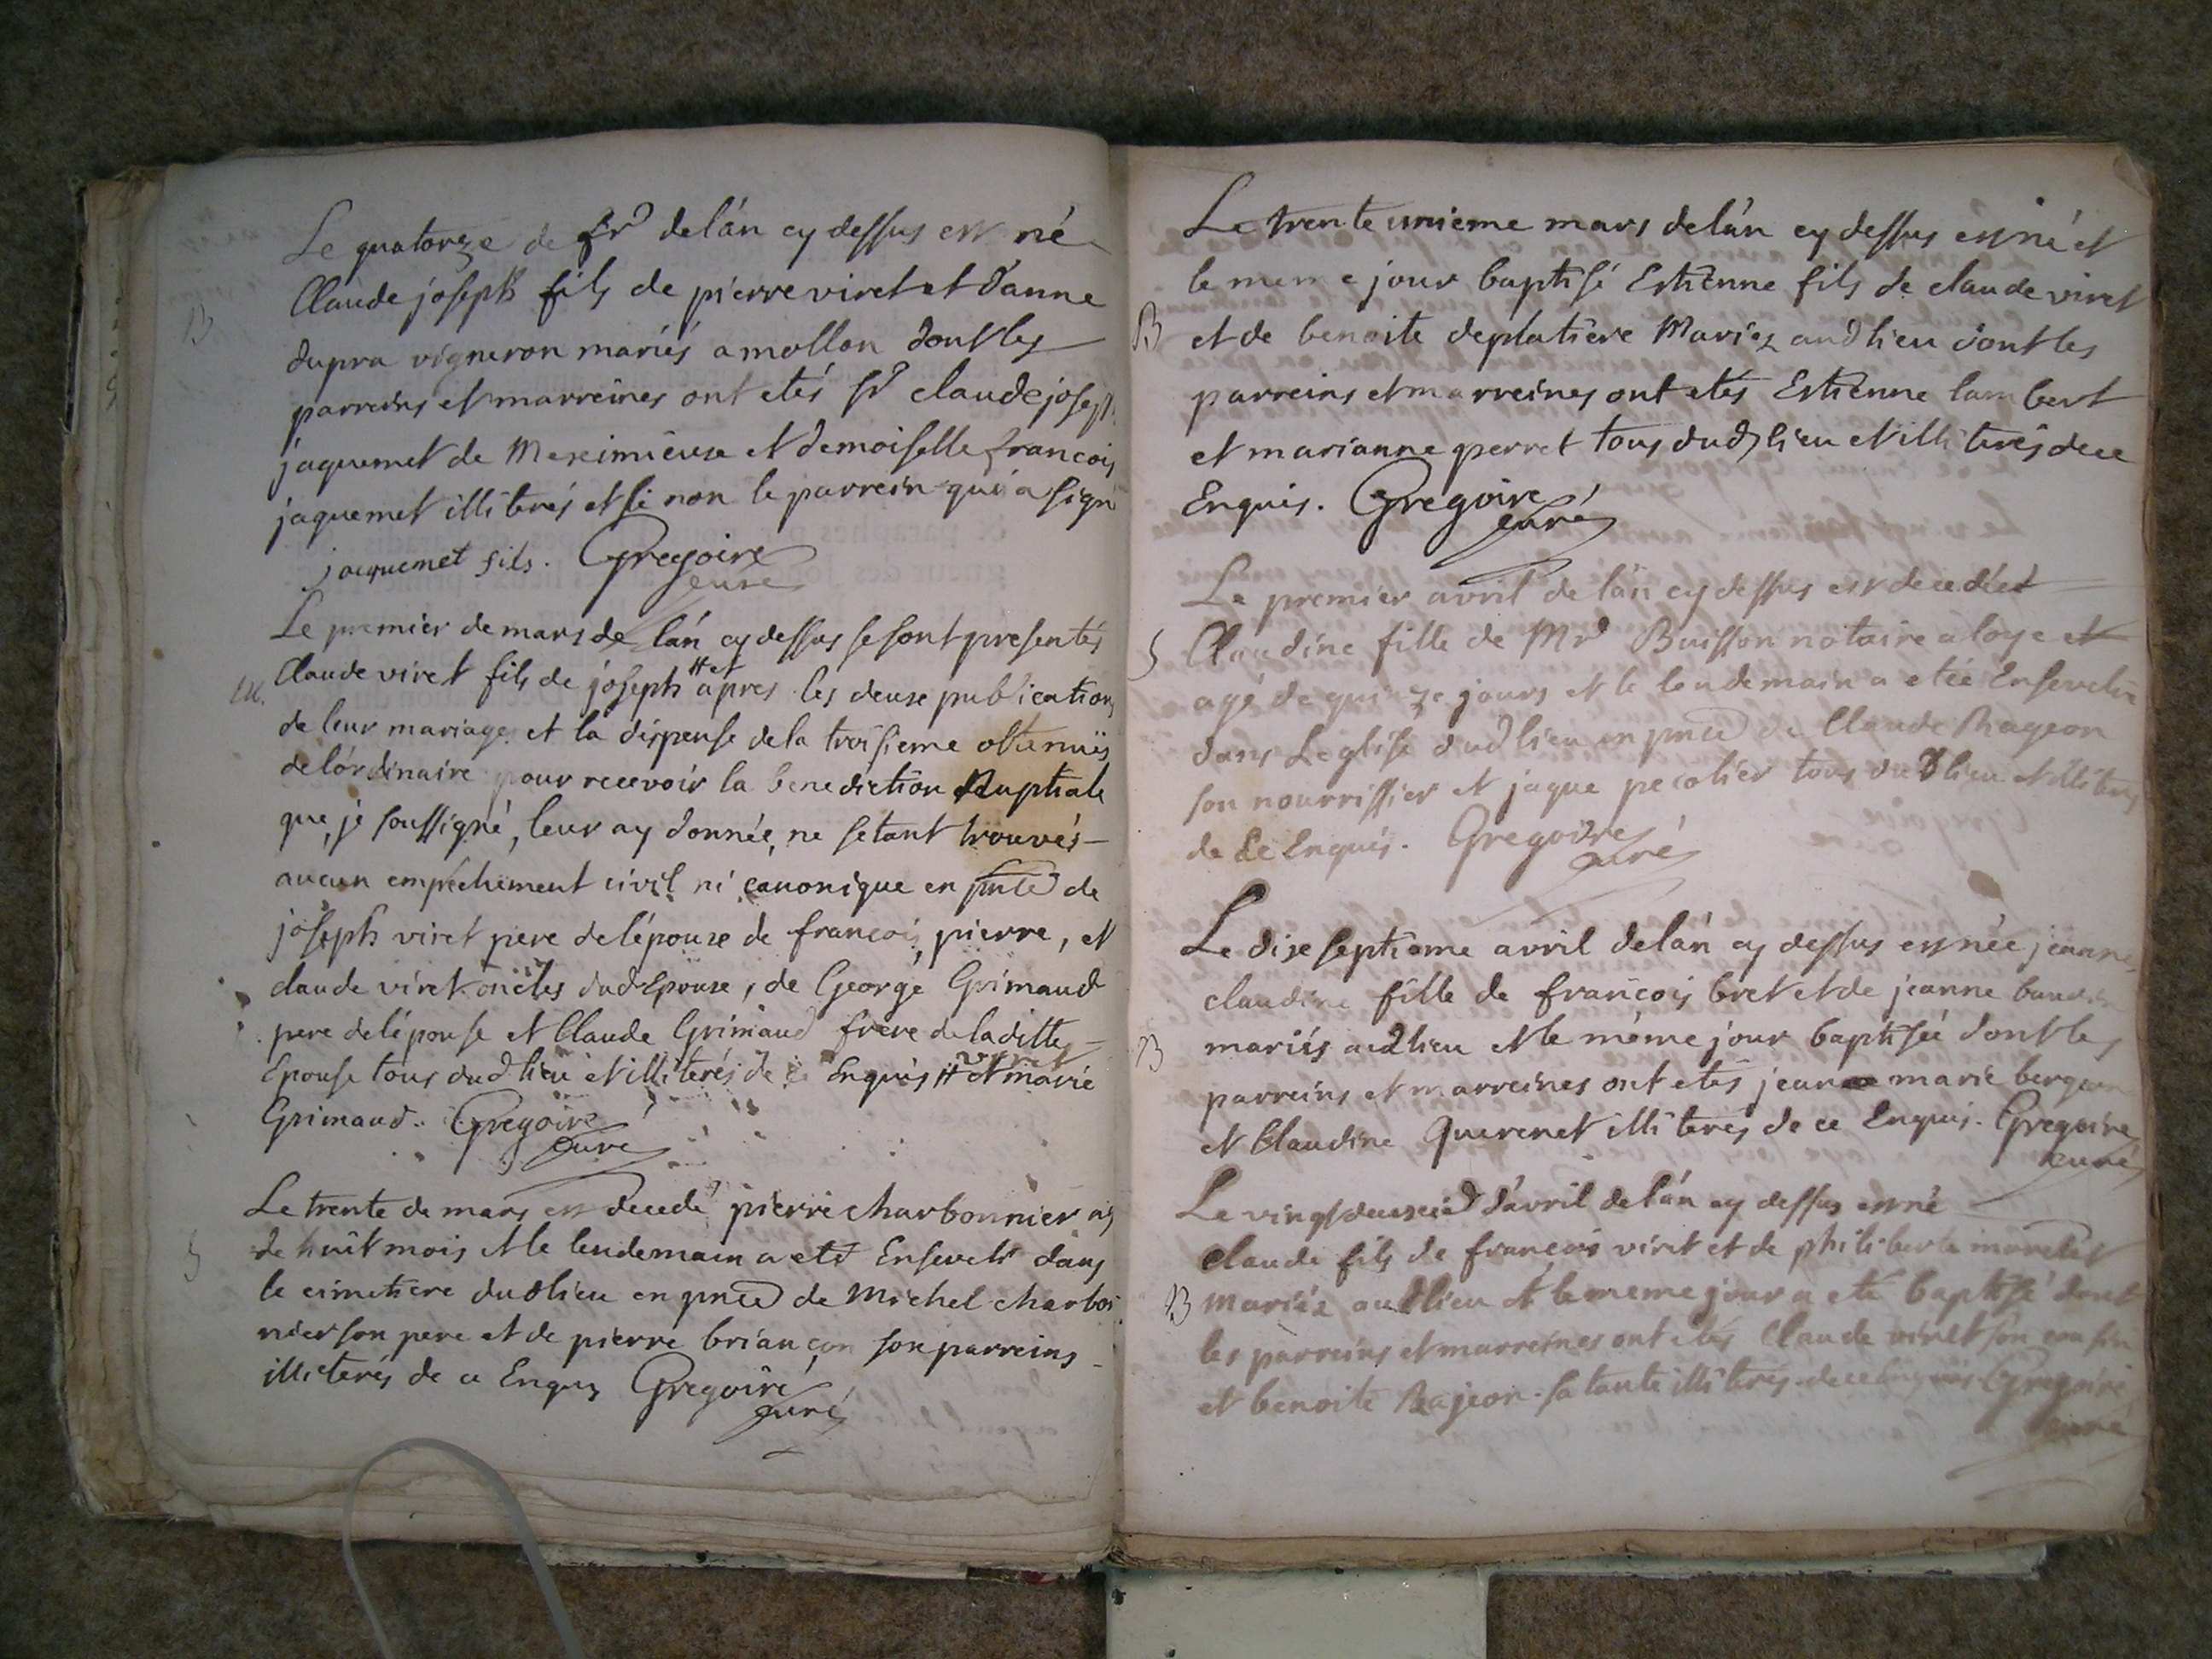 Le quatorze de fr delán cy dessus est né
B
Claude joseph fils de pierre viret et d'anne
dupra vigneron mariés a mollon dont les
parreins et marreines ont etés sr claude joseph
jaquemet de Meximieuse et demoiselle francois
jaquemet illiterés et si non le parrein qui a signé
jacquemet fils. Gregoire
curé
Le premier de mars de lán cy dessus se sont presentés
M.
Claude viret fils de joseph # et apres les deuse publications
de leur mariage et la dispense de la troisieme obtenuës
de lórdinaire pour recevoir la benediction Nuptiale
que, je soussigné, leur ay donnée, ne setant trouvés
aucun empêchement civil ni canonique en pnce de
joseph viret pere de lépouse de francois, pierre, et
claude viret oncles dud Epouse, de George Grimaud
pere de lépouse et Claude Grimaud frere de laditte
Epouse tous dud lieu et illiterés de ce Enquis # et marie
Grimaud. Gregoire
curé
Le trente de mars est decedé pierre charbonnier ag
S
de huit mois et le lendemain a eté Enseveli dans
le cimetiere dud lieu en pnce de Michel charbon
nier son pere et de pierre briançon son parreins
illiterés de ce Enquis Gregoire
curé
Le trente unieme mars de lán cy dessus est né et
le meme jour baptisé Estienne fils de claude viret
B et de benoite deplatiere Mariez aud lieu dont les
parreins et marreines ont etés Estienne lambert
et marianne perret tous dud lieu et illiterés de ce
Enquis. Gregoire
curé
Le premier avril de lán cy dessus est decedeé
S Claudine fille de Mr Buisson notaire a loye et
agé de quinze jours et le lendemain a etée Ensevelie
dans Leglise dud lieu en pnce de Claude Rageon
son nourrissier et jaque pecolier tous dud lieu et illiterés
de Ce Enquis. Gregoire
curé
Le dixe septieme avril de lán cy dessus est née jeanne
claudine fille de francois bret et de jeanne
B mariés aud lieu et le même jour baptisée dont les
parreins et marreines ont etés jean marie
et Claudine Querenet illiterés de ce Enquis. Gregoire
curé
Le vingt deuxeie d'avril de lán cy dessus est né
claude fils de francois viret et de philiberte
B mariéz aud lieu et le meme jour a eté baptisé dont
les parreins et marreines ont etés Claude viret son cousin
et benoite Rajeon sa tante illiterés de ce Enquis Gregoire
curé